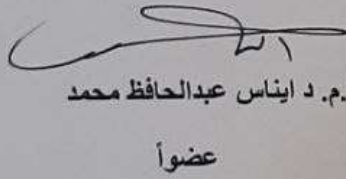 .م. د ايناس عبدالحافظ محمد
عضواً